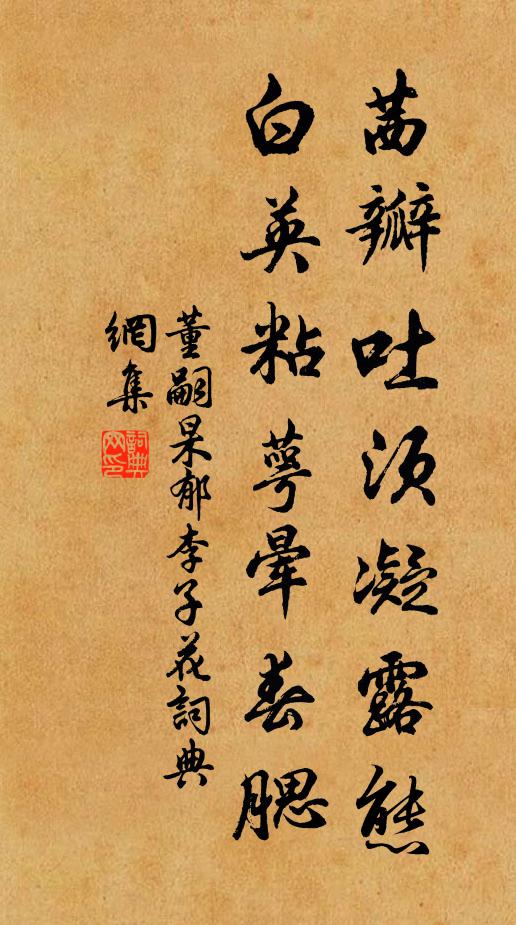 茜瓣吐須凝露態
白英粘萼暈春腮
董嗣杲郁李子花詞典
網集
詞典
网印